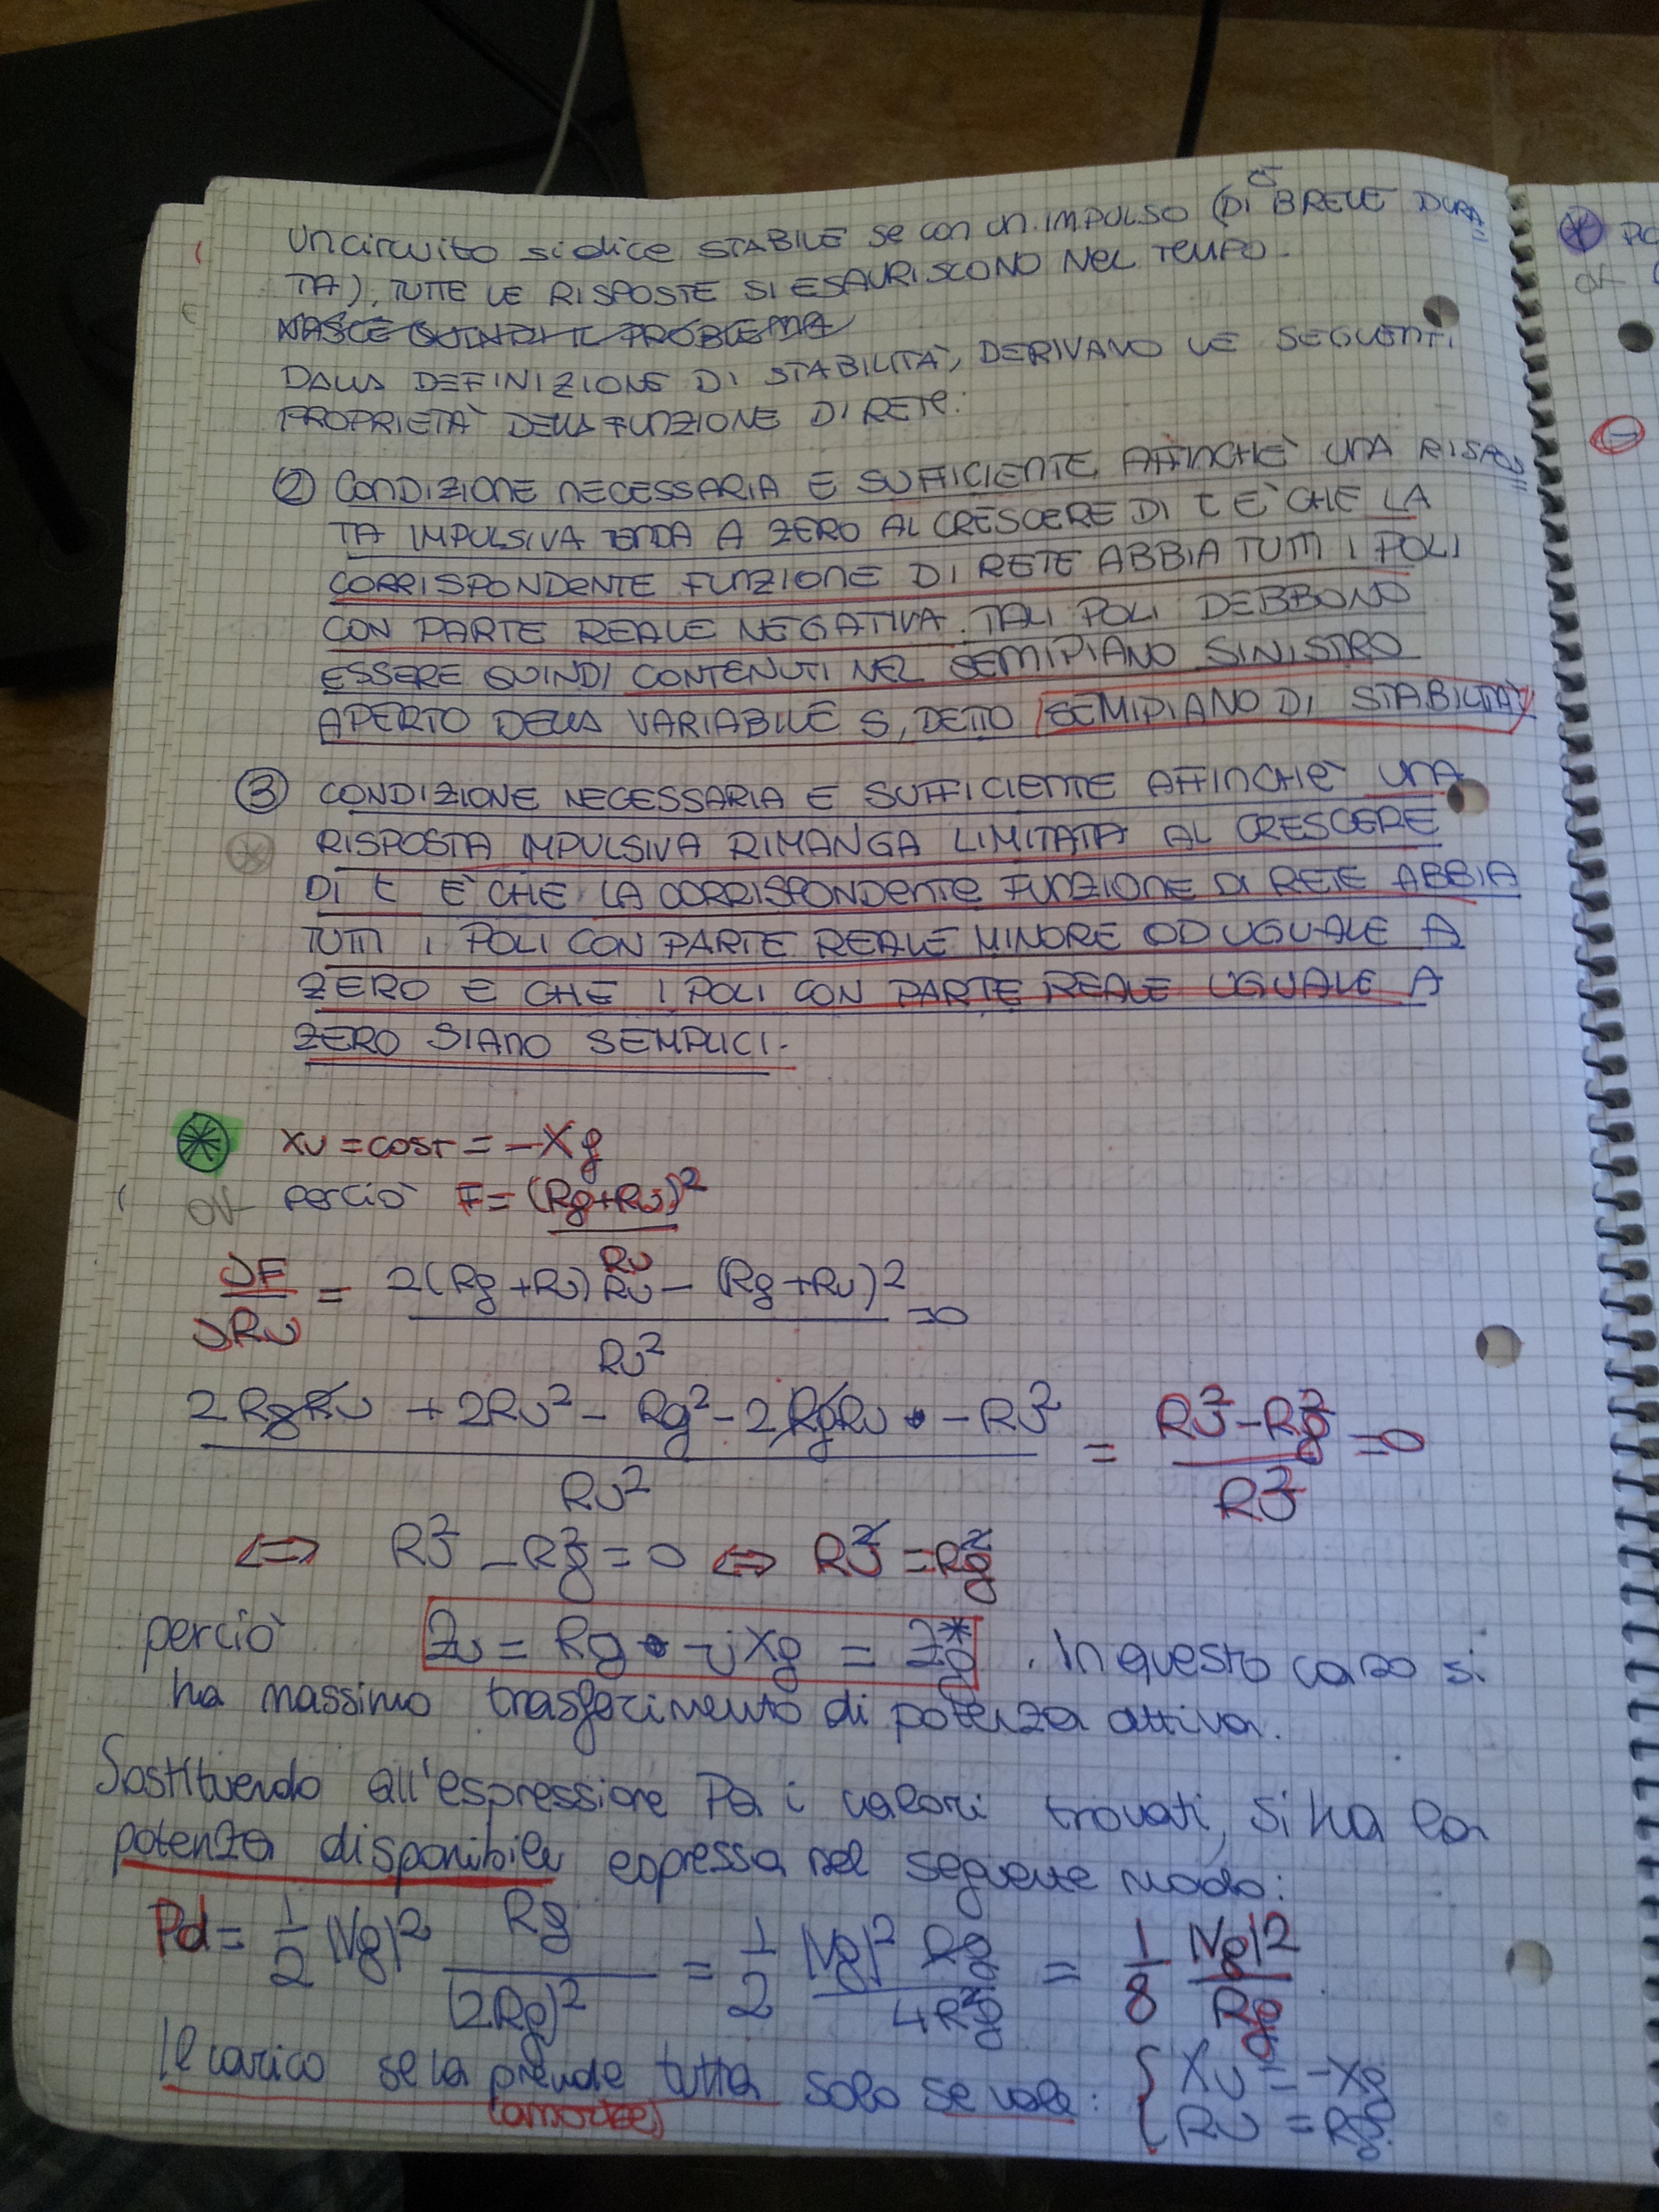 Un circuito si dice STABILE se con un IMPULSO (DI BREVE DURA=
TA), TUTTE LE RISPOSTE SI ESAURISCONO NEL TEMPO.
NASCE QUINDI IL PROBLEMA
DALLA DEFINIZIONE DI STABILITA', DERIVANO LE SEGUENTI
PROPRIETA' DELLA FUNZIONE DI RETE:
② CONDIZIONE NECESSARIA E SUFFICIENTE AFFINCHE' UNA RISPOS=
TA IMPULSIVA TENDA A ZERO AL CRESCERE DI t E' CHE LA
CORRISPONDENTE FUNZIONE DI RETE ABBIA TUTTI I POLI
CON PARTE REALE NEGATIVA. TALI POLI DEBBONO
ESSERE QUINDI CONTENUTI NEL SEMIPIANO SINISTRO
APERTO DELLA VARIABILE S, DETTO SEMIPIANO DI STABILITA'
③ CONDIZIONE NECESSARIA E SUFFICIENTE AFFINCHE' UNA
RISPOSTA IMPULSIVA RIMANGA LIMITATA AL CRESCERE
DI t E' CHE LA CORRISPONDENTE FUNZIONE DI RETE ABBIA
TUTTI I POLI CON PARTE REALE MINORE OD UGUALE A
ZERO E CHE I POLI CON PARTE REALE UGUALE A
ZERO SIANO SEMPLICI.
Xu = cost = -Xg
OK perciò F = (Rg+Ru)²/Ru
∂F/∂Ru = (2(Rg+Ru)Ru - (Rg+Ru)²)/Ru² = 0
(2RgRu + 2Ru² - Rg² - 2RgRu - Ru²)/Ru² = (Ru²-Rg²)/Ru² = 0
⇔ Ru² - Rg² = 0 ⇔ Ru² = Rg²
perciò Zu = Rg - jXg = Zg* . In questo caso si
ha massimo trasferimento di potenza attiva.
Sostituendo all'espressione Pa i valori trovati, si ha la
potenza disponibile espressa nel seguente modo:
Pd = 1/2 |Vg|² Rg/(2Rg)² = 1/2 |Vg|² Rg/4Rg² = 1/8 |Vg|²/Rg
Il carico se la prende tutta solo se vale: { Xu = -Xg
Ru = Rg